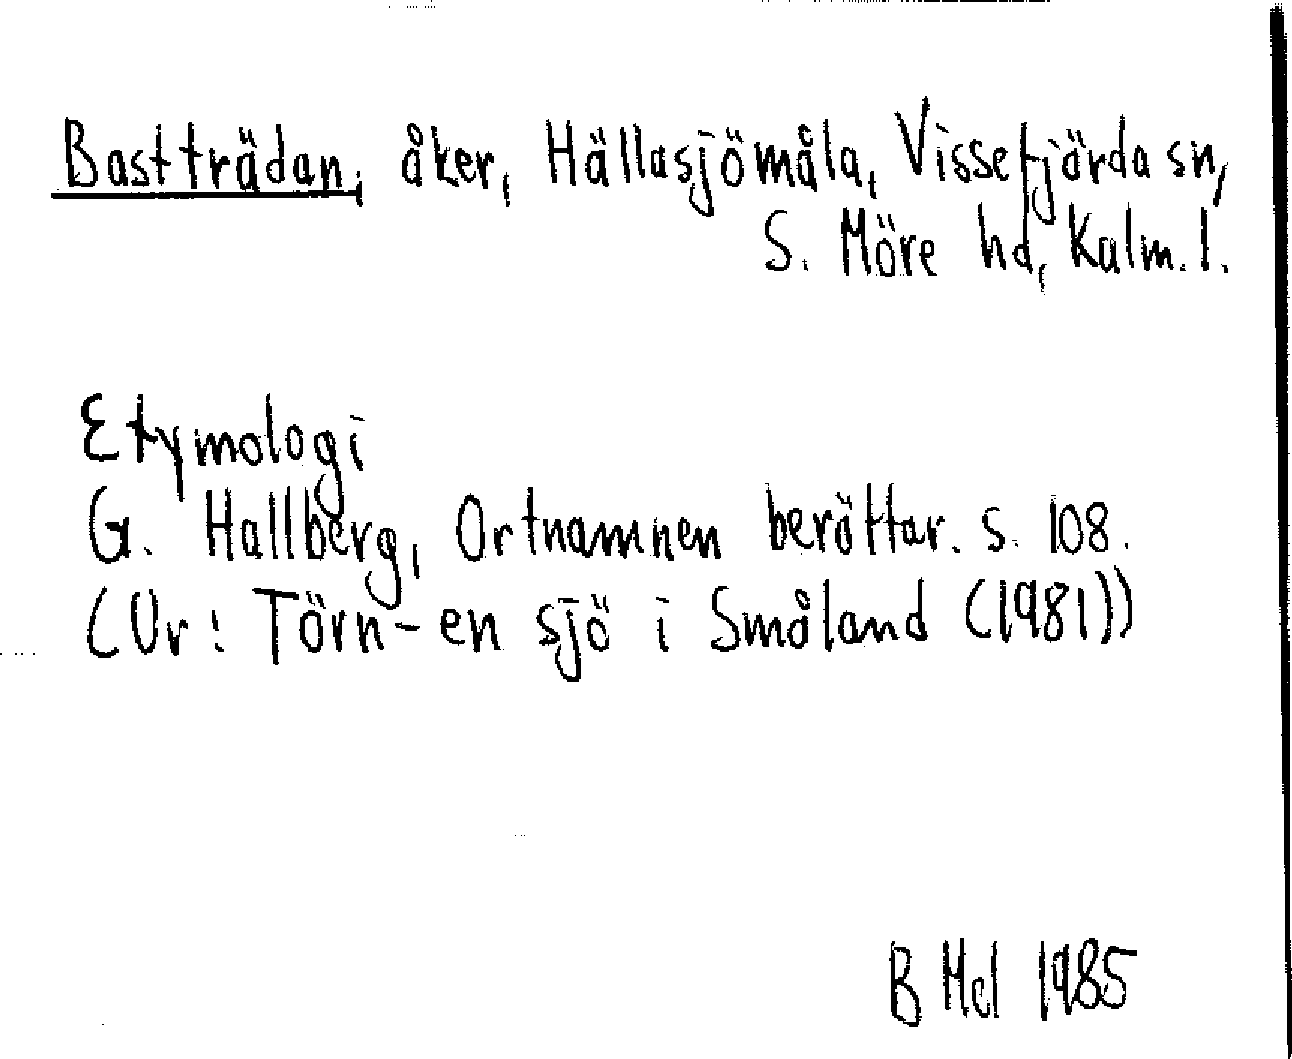 Bastträdan, åker, Hällasjömåla, Vissefjärda sn,
S. Möre hd, Kalm. l.
Etymologi
G. Hallberg, Ortnamnen berättar. s. 108.
(Ur: Törn - en sjö i Småland (1981))
B Hel 1985